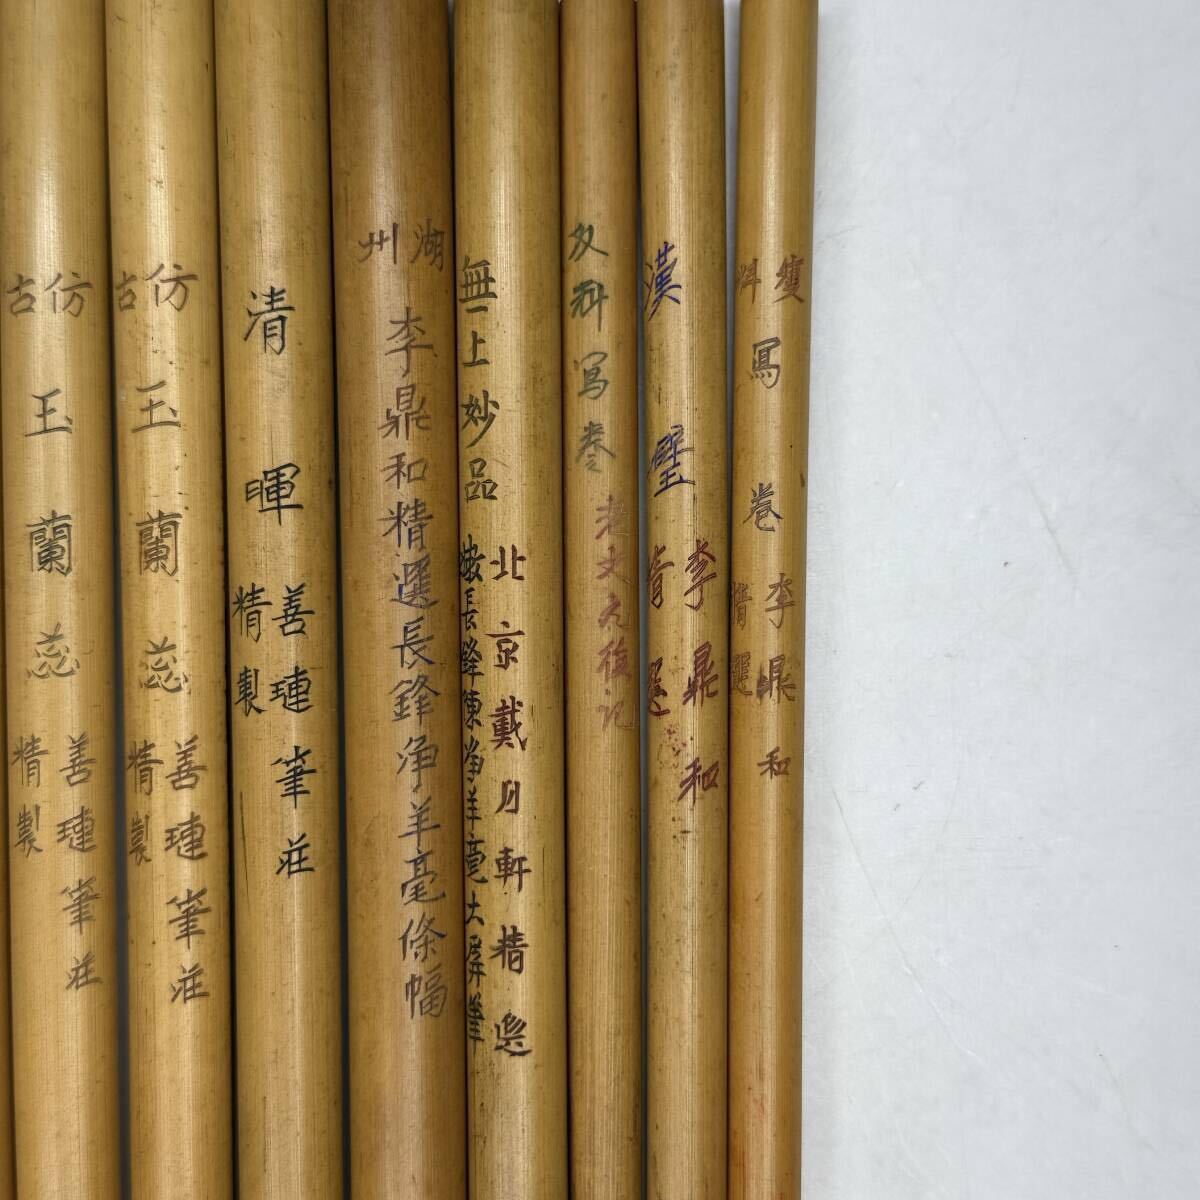 仿古
玉蘭蕊
善璉筆莊
精製
仿古
玉蘭蕊
善璉筆莊
精製
清暉
善璉筆莊
精製
湖州
李鼎和精選長鋒净羊毫條幅
無上妙品
北京戴月軒精选
長鋒净羊毫大屏筆
双料写卷
老文元後记
漢璧
李鼎和
精選
雙料
寫卷
李鼎和
精選